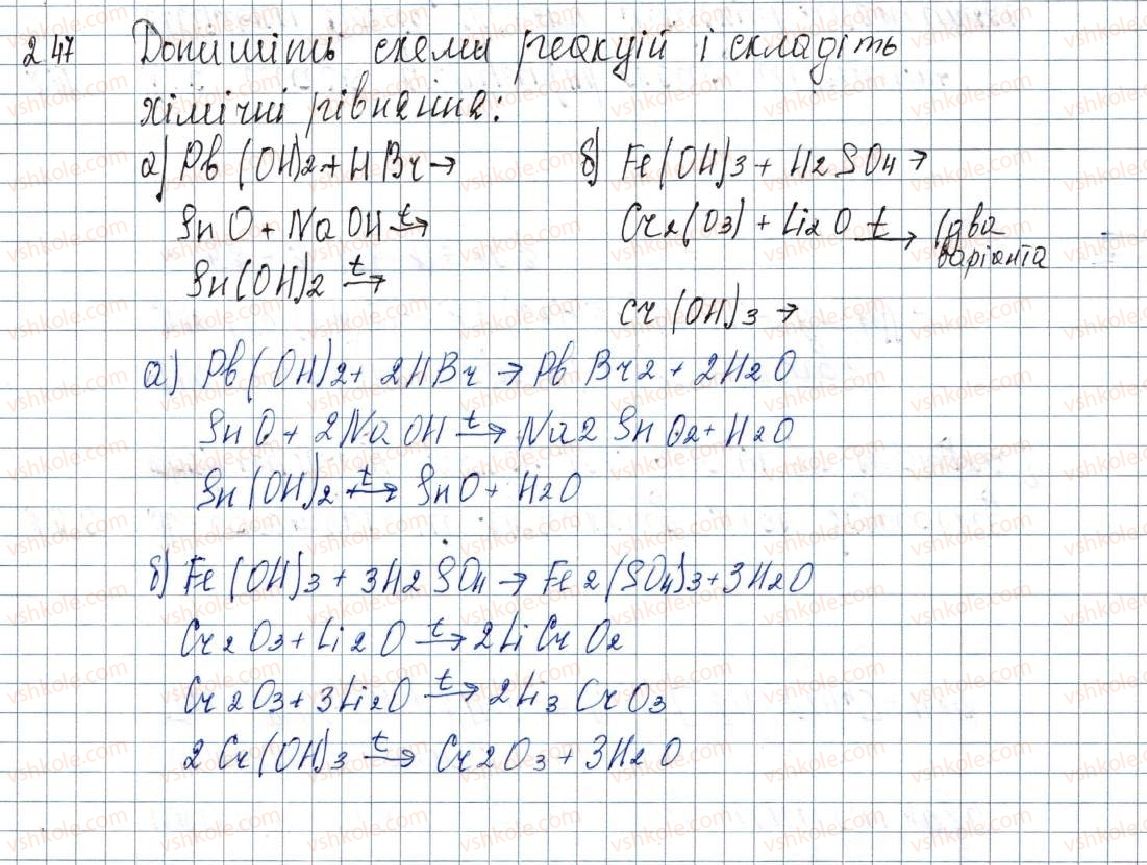 247 Допишіть схеми реакцій і складіть
хімічні рівняння:
а) Pb(OH)2 + HBr → б) Fe(OH)3 + H2SO4 →
SnO + NaOH t→ Cr2(O3) + Li2O t→ (два
варіанта
Sn(OH)2 t→
Cr(OH)3 →
а) Pb(OH)2 + 2HBr → PbBr2 + 2H2O
SnO + 2NaOH t→ Na2SnO2 + H2O
Sn(OH)2 t→ SnO + H2O
б) Fe(OH)3 + 3H2SO4 → Fe2(SO4)3 + 3H2O
Cr2O3 + Li2O t→ 2LiCrO2
Cr2O3 + 3Li2O t→ 2Li3CrO3
2Cr(OH)3 t→ Cr2O3 + 3H2O
vshkole.com